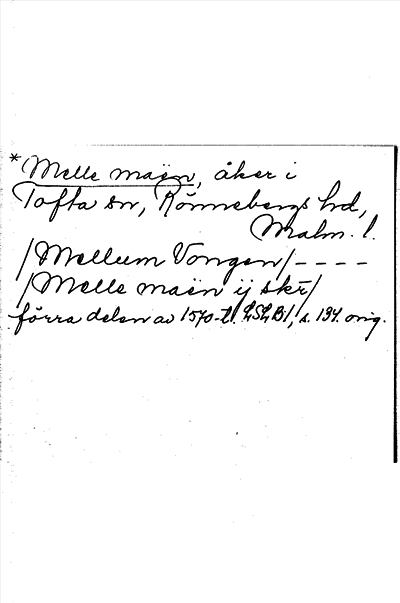 * Melle maën, åker i
Tofta sn, Rönnebergs hd,
Malm. l.
/Mellum Vongen/ - - - -
/Melle maën ij skr̄/
förra delen av 1570-t. LSLB1, s. 134. orig.